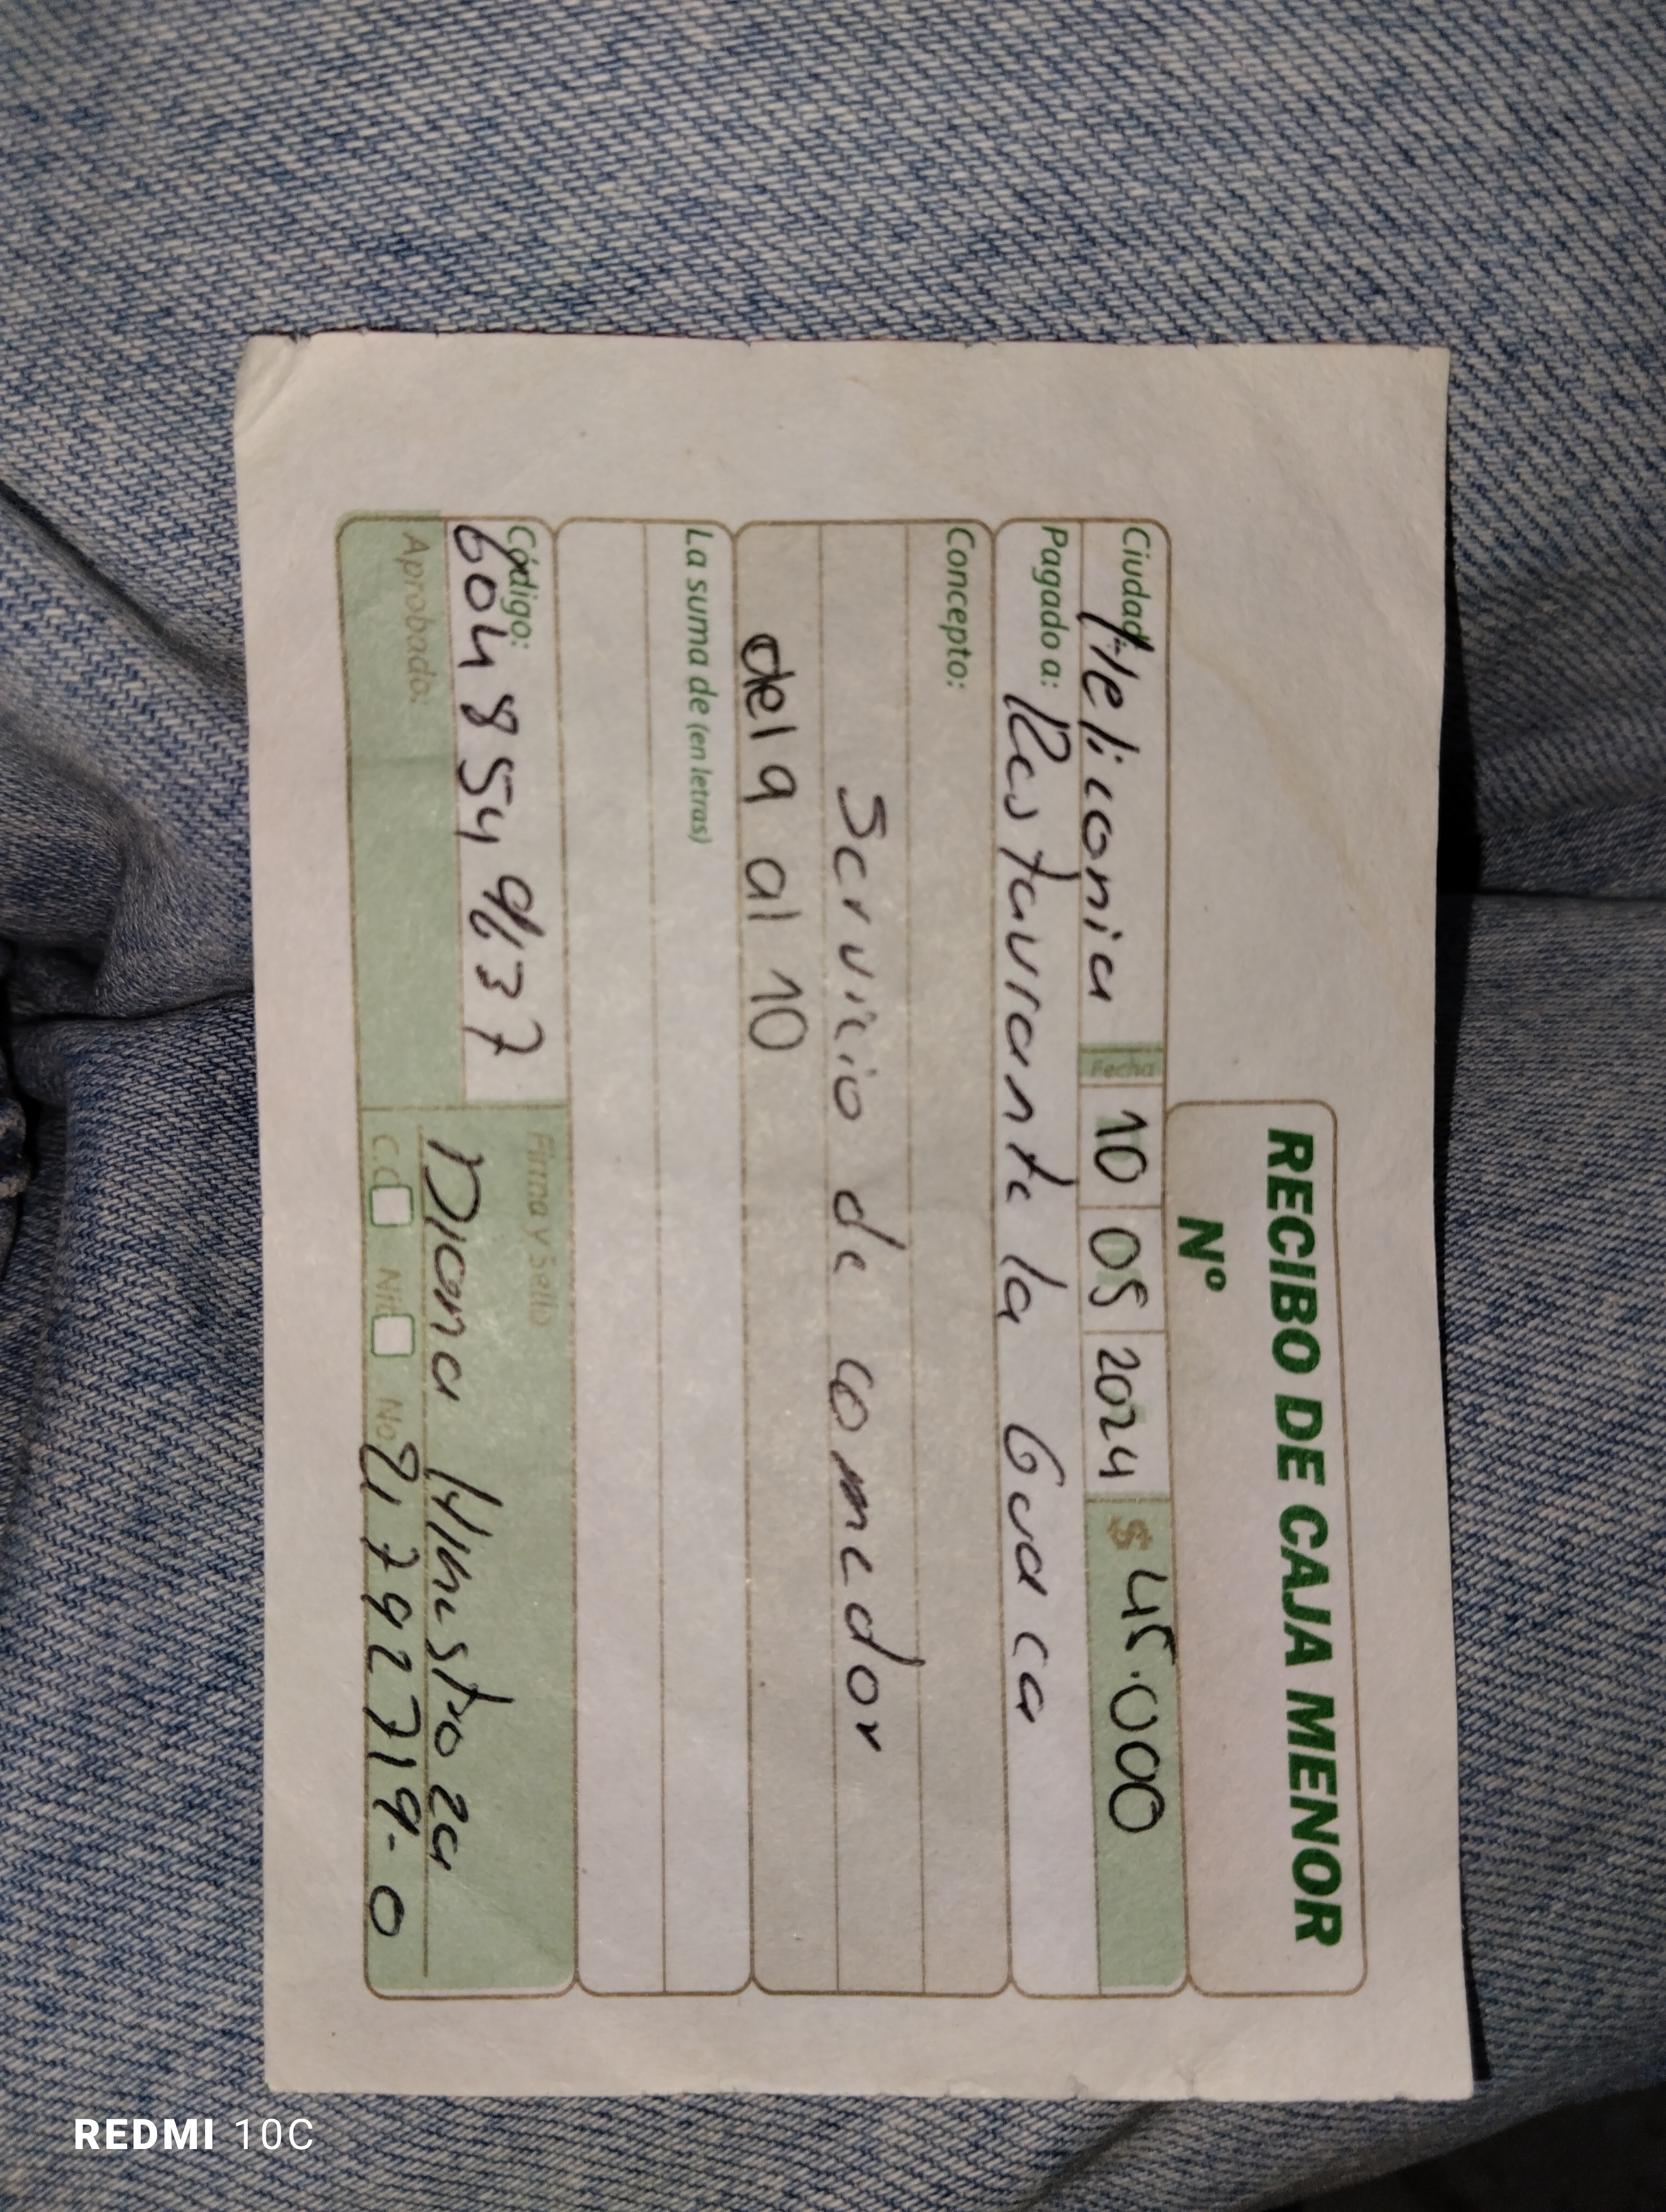 RECIBO DE CAJA MENOR
Nº
Ciudad: Heliconia Fecha 10 05 2024 $ 45.000
Pagado a: Restaurante la Guaca
Concepto:
Servicio de comedor
del 9 al 10
La suma de (en letras)
Código: 6048549137
Firma y Sello
Aprobado:
Diana Hinestroza
C.C. Nit. No. 21792719-0
REDMI 10C